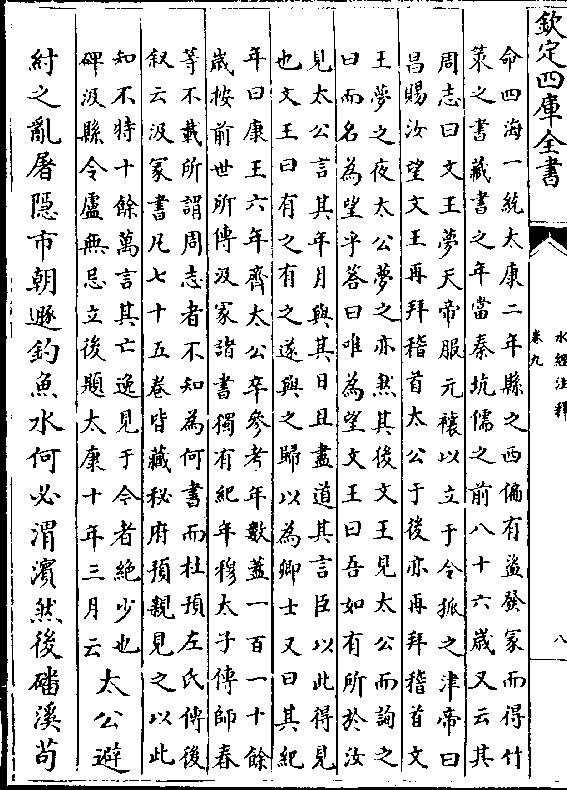 欽定四庫全書
水經注釋
卷九
八
命四海一統太康二年縣之西偏有盜發冢而得竹
策之書藏書之年當秦坑儒之前八十六歲又云其
周志曰文王夢天帝服元禳以立于令狐之津帝曰
昌賜汝望文王再拜稽首太公于後亦再拜稽首文
王夢之夜太公夢之亦然其後文王見太公而詢之
曰而名為望乎答曰唯為望文王曰吾如有所於汝
見太公言其年月與其日且盡道其言臣以此得見
也文王曰有之有之遂與之歸以為卿士又曰其紀
年曰康王六年齊太公卒參考年數蓋一百一十餘
歲按前世所傳汲冢諸書獨有紀年穆太子傳師春
等不載所謂周志者不知為何書而杜預左氏傳後
叙云汲冢書凡七十五卷皆藏秘府預親見之以此
知不特十餘萬言其亡逸見于今者絶少也
碑汲縣令盧無忌立後題太康十年三月云
太公避
紂之亂屠隱市朝遯釣魚水何必渭濱然後磻溪苟